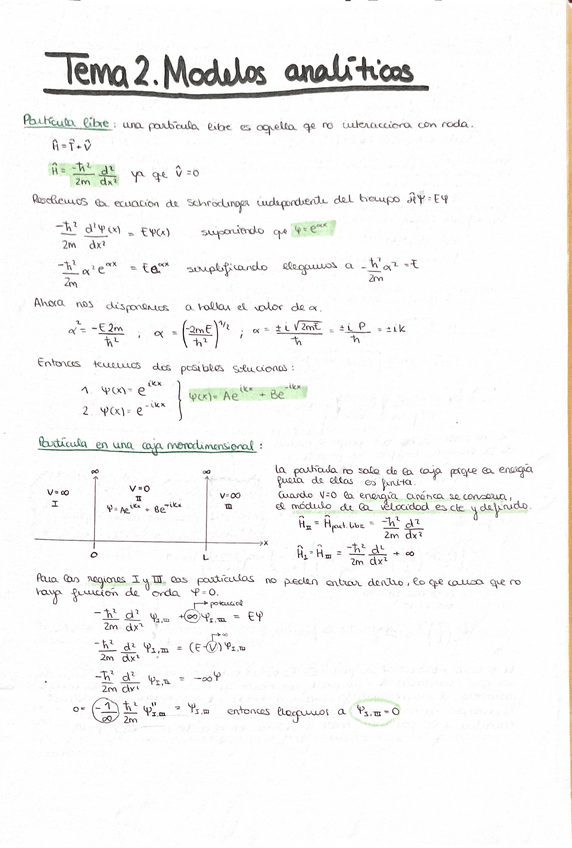 Tema 2. Modelos analíticos
Partícula libre: una partícula libre es aquella qe no interacciona con nada.
Ĥ = T̂ + V̂
Ĥ = -ħ²/2m d²/dx² ya qe V̂ = 0
Resolvemos la ecuación de Schrödinger independiente del tiempo ĤΨ = EΨ
-ħ²/2m d²Ψ(x)/dx² = EΨ(x) suponiendo que Ψ = e^αx
-ħ²/2m α² e^αx = E e^αx simplificando llegamos a -ħ²/2m α² = E
Ahora nos disponemos a hallar el valor de α.
α² = -E2m/ħ² , α = (-2mE/ħ²)^1/2 ; α = ±i√2mE/ħ = ±i p/ħ = ±ik
Entonces tenemos dos posibles soluciones:
1. Ψ(x) = e^ikx
2. Ψ(x) = e^-ikx } Ψ(x) = Ae^ikx + Be^-ikx
Partícula en una caja monodimensional:
∞ ∞
V=∞ I V=0 II Ψ = Ae^ikx + Be^-ikx V=∞ III
0 L x
La partícula no sale de la caja porqe la energía
fuera de ellas es finita.
Cuando V=0 la energía cinética se conserva,
el módulo de la velocidad es cte y definido.
Ĥ_II = Ĥ_part. libre = -ħ²/2m d²/dx²
Ĥ_I = Ĥ_III = -ħ²/2m d²/dx² + ∞
Para las regiones I y III las partículas no peden entrar dentro, lo qe causa qe no
haya función de onda Ψ = 0.
→ potencial
-ħ²/2m d²/dx² Ψ_I,III + ∞Ψ_I,III = EΨ
→ ∞
-ħ²/2m d²/dx² Ψ_I,III = (E-V)Ψ_I,III
-ħ²/2m d²/dx² Ψ_I,III = -∞Ψ
0 = -1/∞ ħ²/2m Ψ''_I,III = Ψ_I,III entonces llegamos a Ψ_I,III = 0